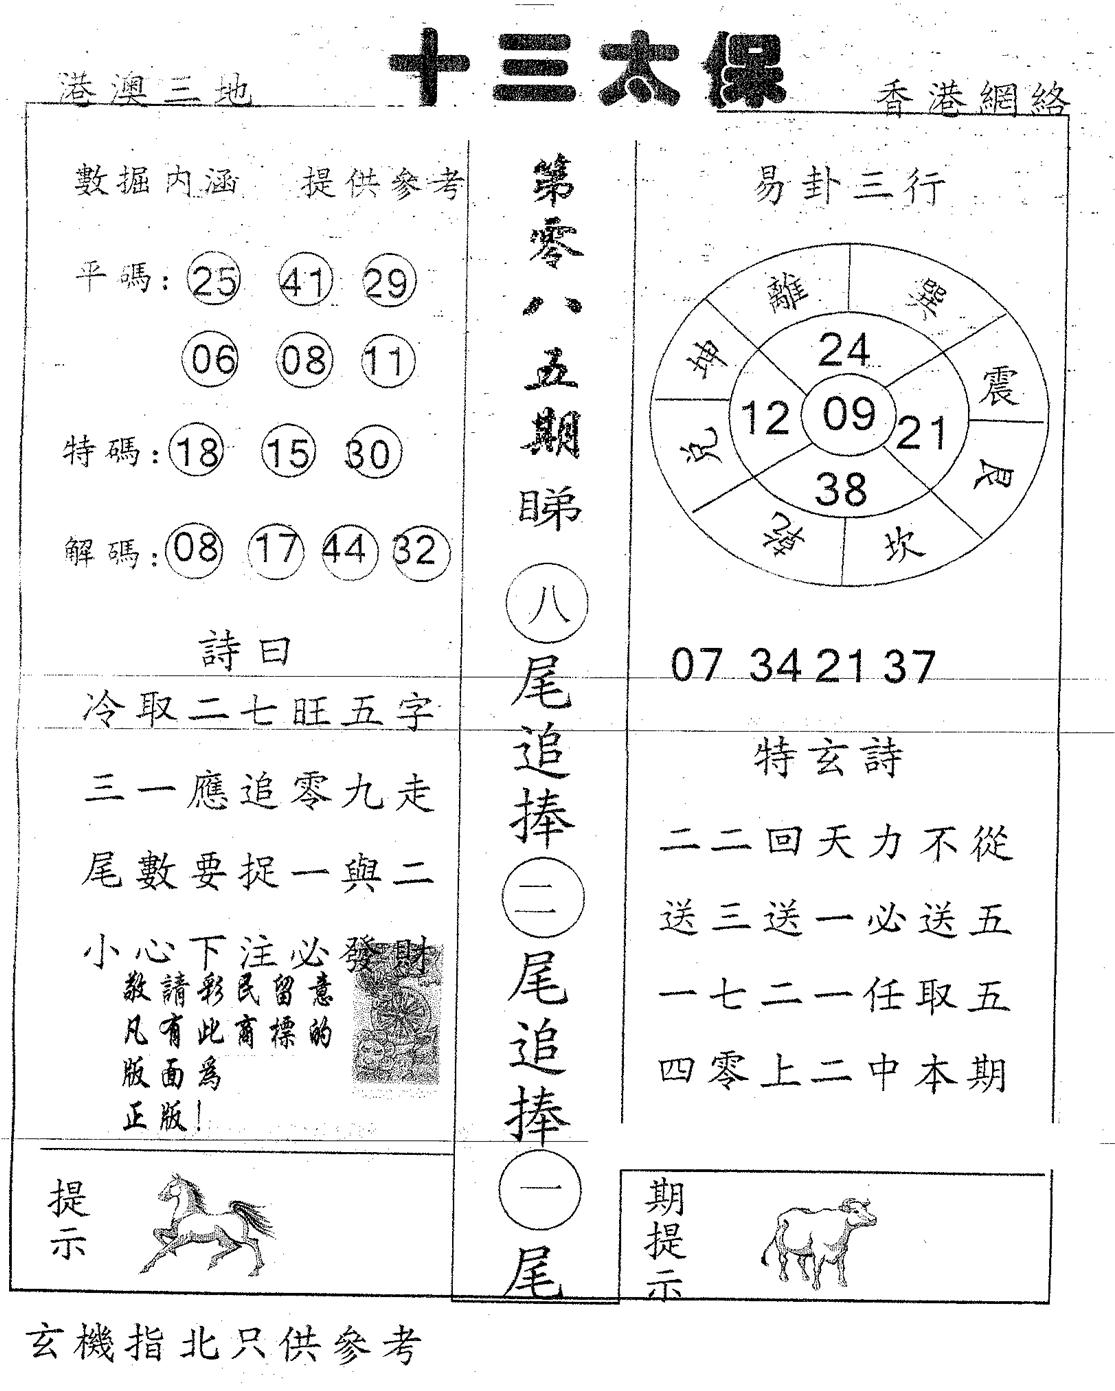 十三太保
港澳三地
香港網絡
數掘内涵 提供參考
平碼: 25 41 29
06 08 11
特碼: 18 15 30
解碼: 08 17 44 32
詩曰
冷取二七旺五字
三一應追零九走
尾數要捉一與二
小心下注必發財
敬請彩民留意
凡有此商標的
版面爲
正版!
提示
第零八五期睇八尾追捧二尾追捧一尾
易卦三行
離 巽
坤 震
兌 艮
乾 坎
24
12 09 21
38
07 34 21 37
特玄詩
二二回天力不從
送三送一必送五
一七二一任取五
四零上二中本期
期提示
玄機指北只供參考